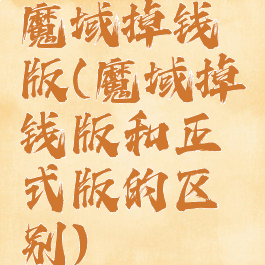 魔域掉钱
版(魔域掉
钱版和正
式版的区
别)